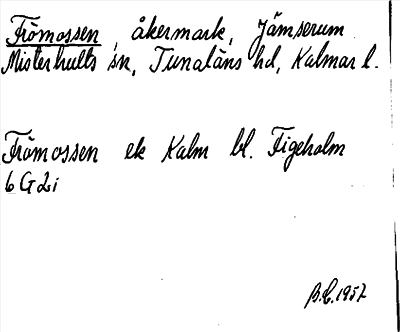 Frömossen, åkermark, Jämserum
Misterhults sn, Tunaläns hd, Kalmar l.
Frömossen ek Kalm bl. Figeholm
6 G 2 i
1957